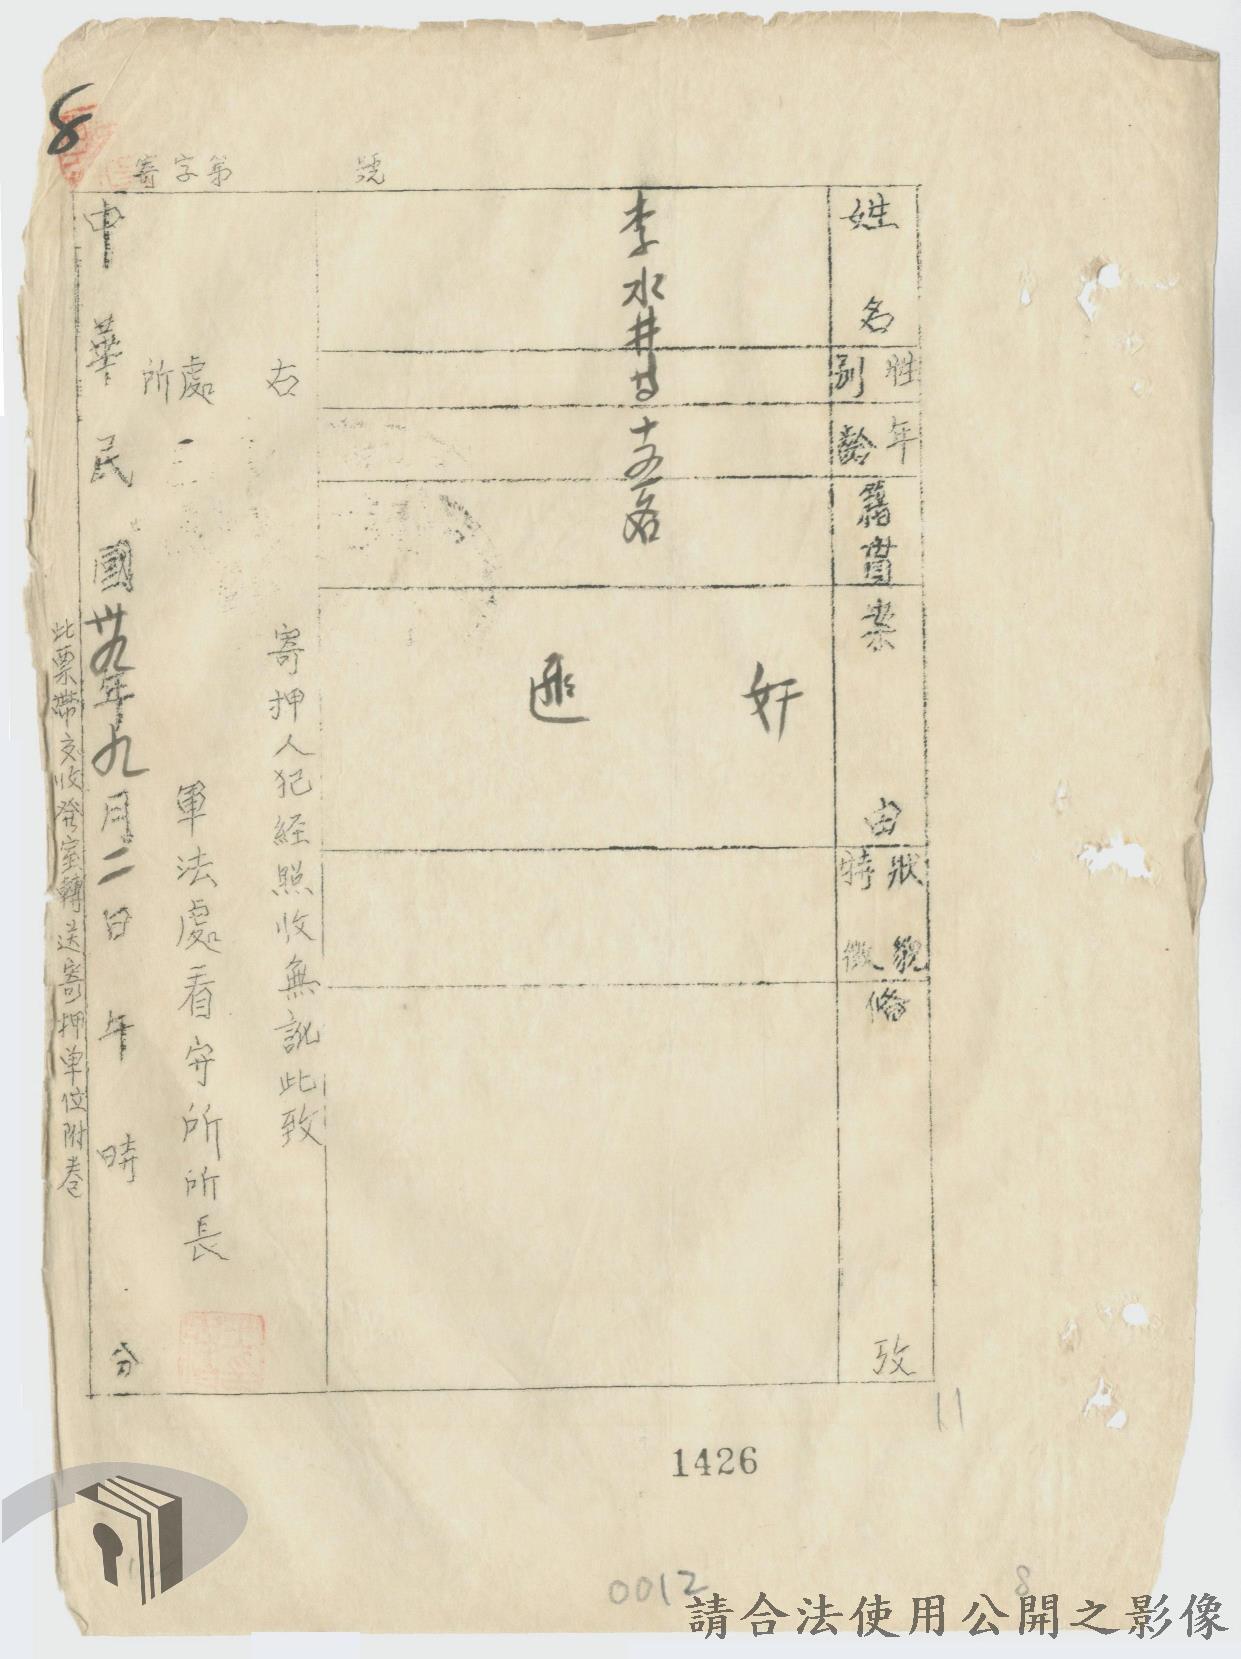 8
寄字第　　號
姓名
性別
年齡
籍貫
案由
狀貌特徵
備攷
李水井等十五名
奸匪
右　寄押人犯経照收無訛此致
處
所
軍法處看守所所長
中華民國卅九年九月二日午時分
此票帶交收發室轉送寄押单位附卷
11
1426
0012
8
請合法使用公開之影像